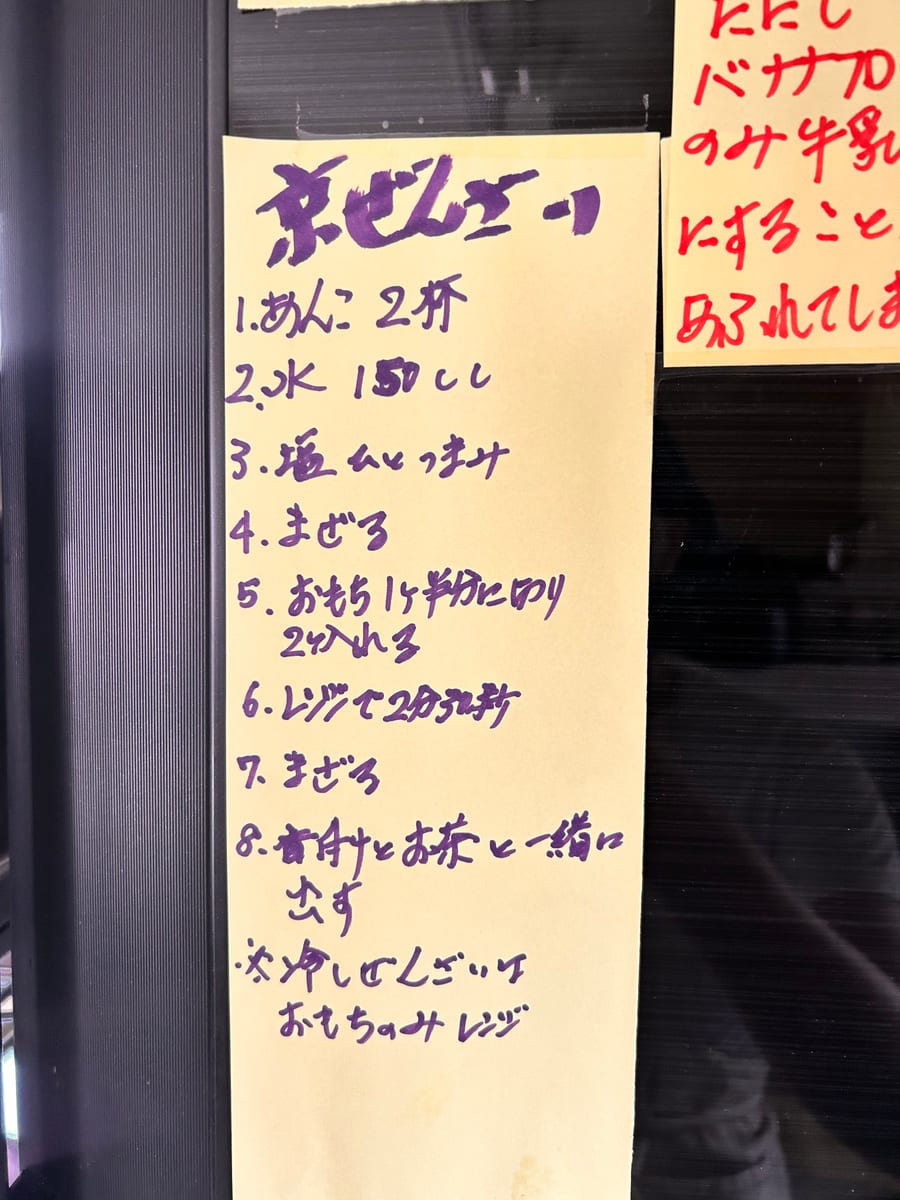 京ぜんざい
1.あんこ 2杯
2.水 150cc
3.塩ひとつまみ
4.まぜる
5.おもち1ヶ半分に切り
2ヶ入れる
6.レンジで2分30秒
7.まぜる
8.昔付とお茶と一緒に
出す
※冷しぜんざいは
おもちのみレンジ
にし
バナナ70
のみ牛乳
にすること
あふれてしま